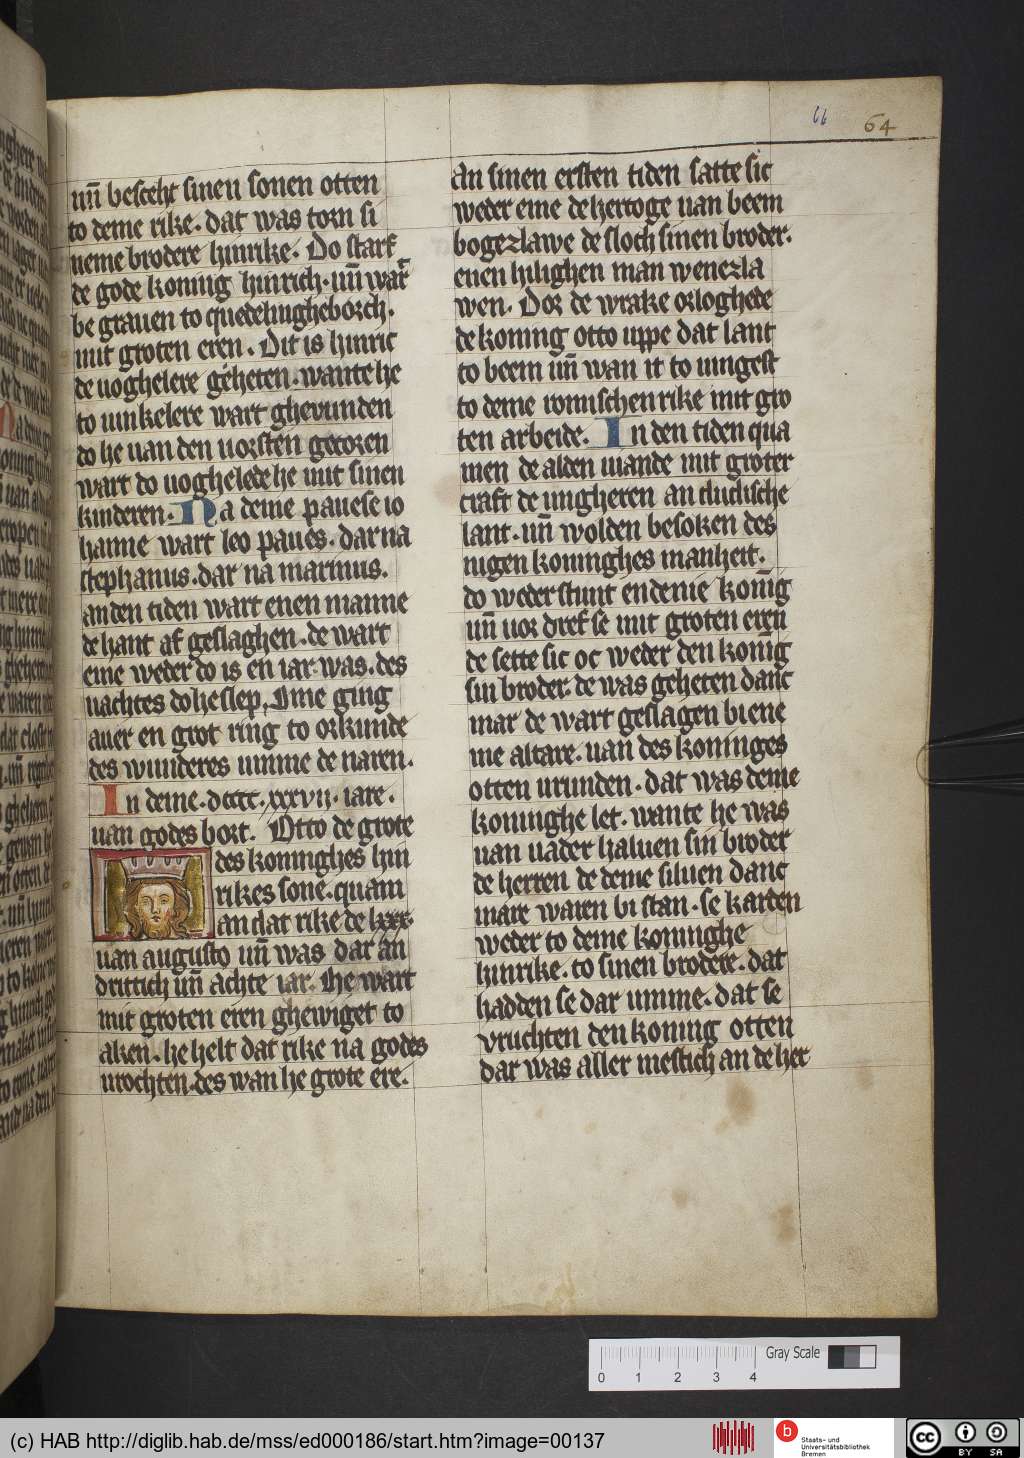 66 64
un̄ besceht sinen sonen otten
to deme rike. dat was torn si
neme brodere hinrike. Do starf
de gode koning hinrich. un̄ wart
be grauen to quedelingheborch.
mit groten eren. Dit is hinric
de uoghelere geheten. wante he
to uinkelere wart ghevunden
do he uan den uorsten gecoren
wart do uoghelede he mit sinen
kinderen. Na deme pauese io
hanne wart leo paues. dar na
stephanus. dar na marinus.
an den tiden wart enen manne
de hant af geslaghen. de wart
eme weder do is en iar was. des
nachtes do he slep, Ime ging
auer en grot ring to orkunde
des wunderes umme de naren.
In deme. dcccc. xxxvii. iare.
uan godes bort. Otto de grote
des koninghes hin
rikes sone. quam
an dat rike de lxxx.
uan augusto un̄ was dar an
drittich un̄ achte iar. He wart
mit groten eren ghewiget to
aken. he helt dat rike na godes
urochten. des wan he grote ere.
An sinen ersten tiden satte sic
weder eme de hertoge uan beem
bogezlawe de sloch sinen broder.
enen hilighen man wenezla
wen. Dor de wrake orloghede
de koning otto uppe dat lant
to beem un̄ wan it to iungest
to deme romischen rike mit gro
ten arbeide. In den tiden qua
men de alden uiande mit groter
craft de ungheren an dudische
lant. un̄ wolden besoken des
nigen koninghes manheit.
do weder stunt en denie kon̄ig
un̄ uor dref se mit groten eren
de sette sic oc weder den kon̄ig
sin broder. de was geheten danc
mar de wart geslagen bi ene
me altare. uan des koninges
otten urunden. dat was deme
koninghe let. wante he was
uan uader haluen sin broder
de herren de deme siluen danc
mare waren bi stan. se karden
weder to deme koninghe
hinrike. to sinen brodere. dat
hadden se dar umme. dat se
vruchten den koning otten
dar was aller mestich an de her
(c) HAB http://diglib.hab.de/mss/ed000186/start.htm?image=00137
Gray Scale
0 1 2 3 4
b Staats- und
Universitätsbibliothek
Bremen
cc BY SA